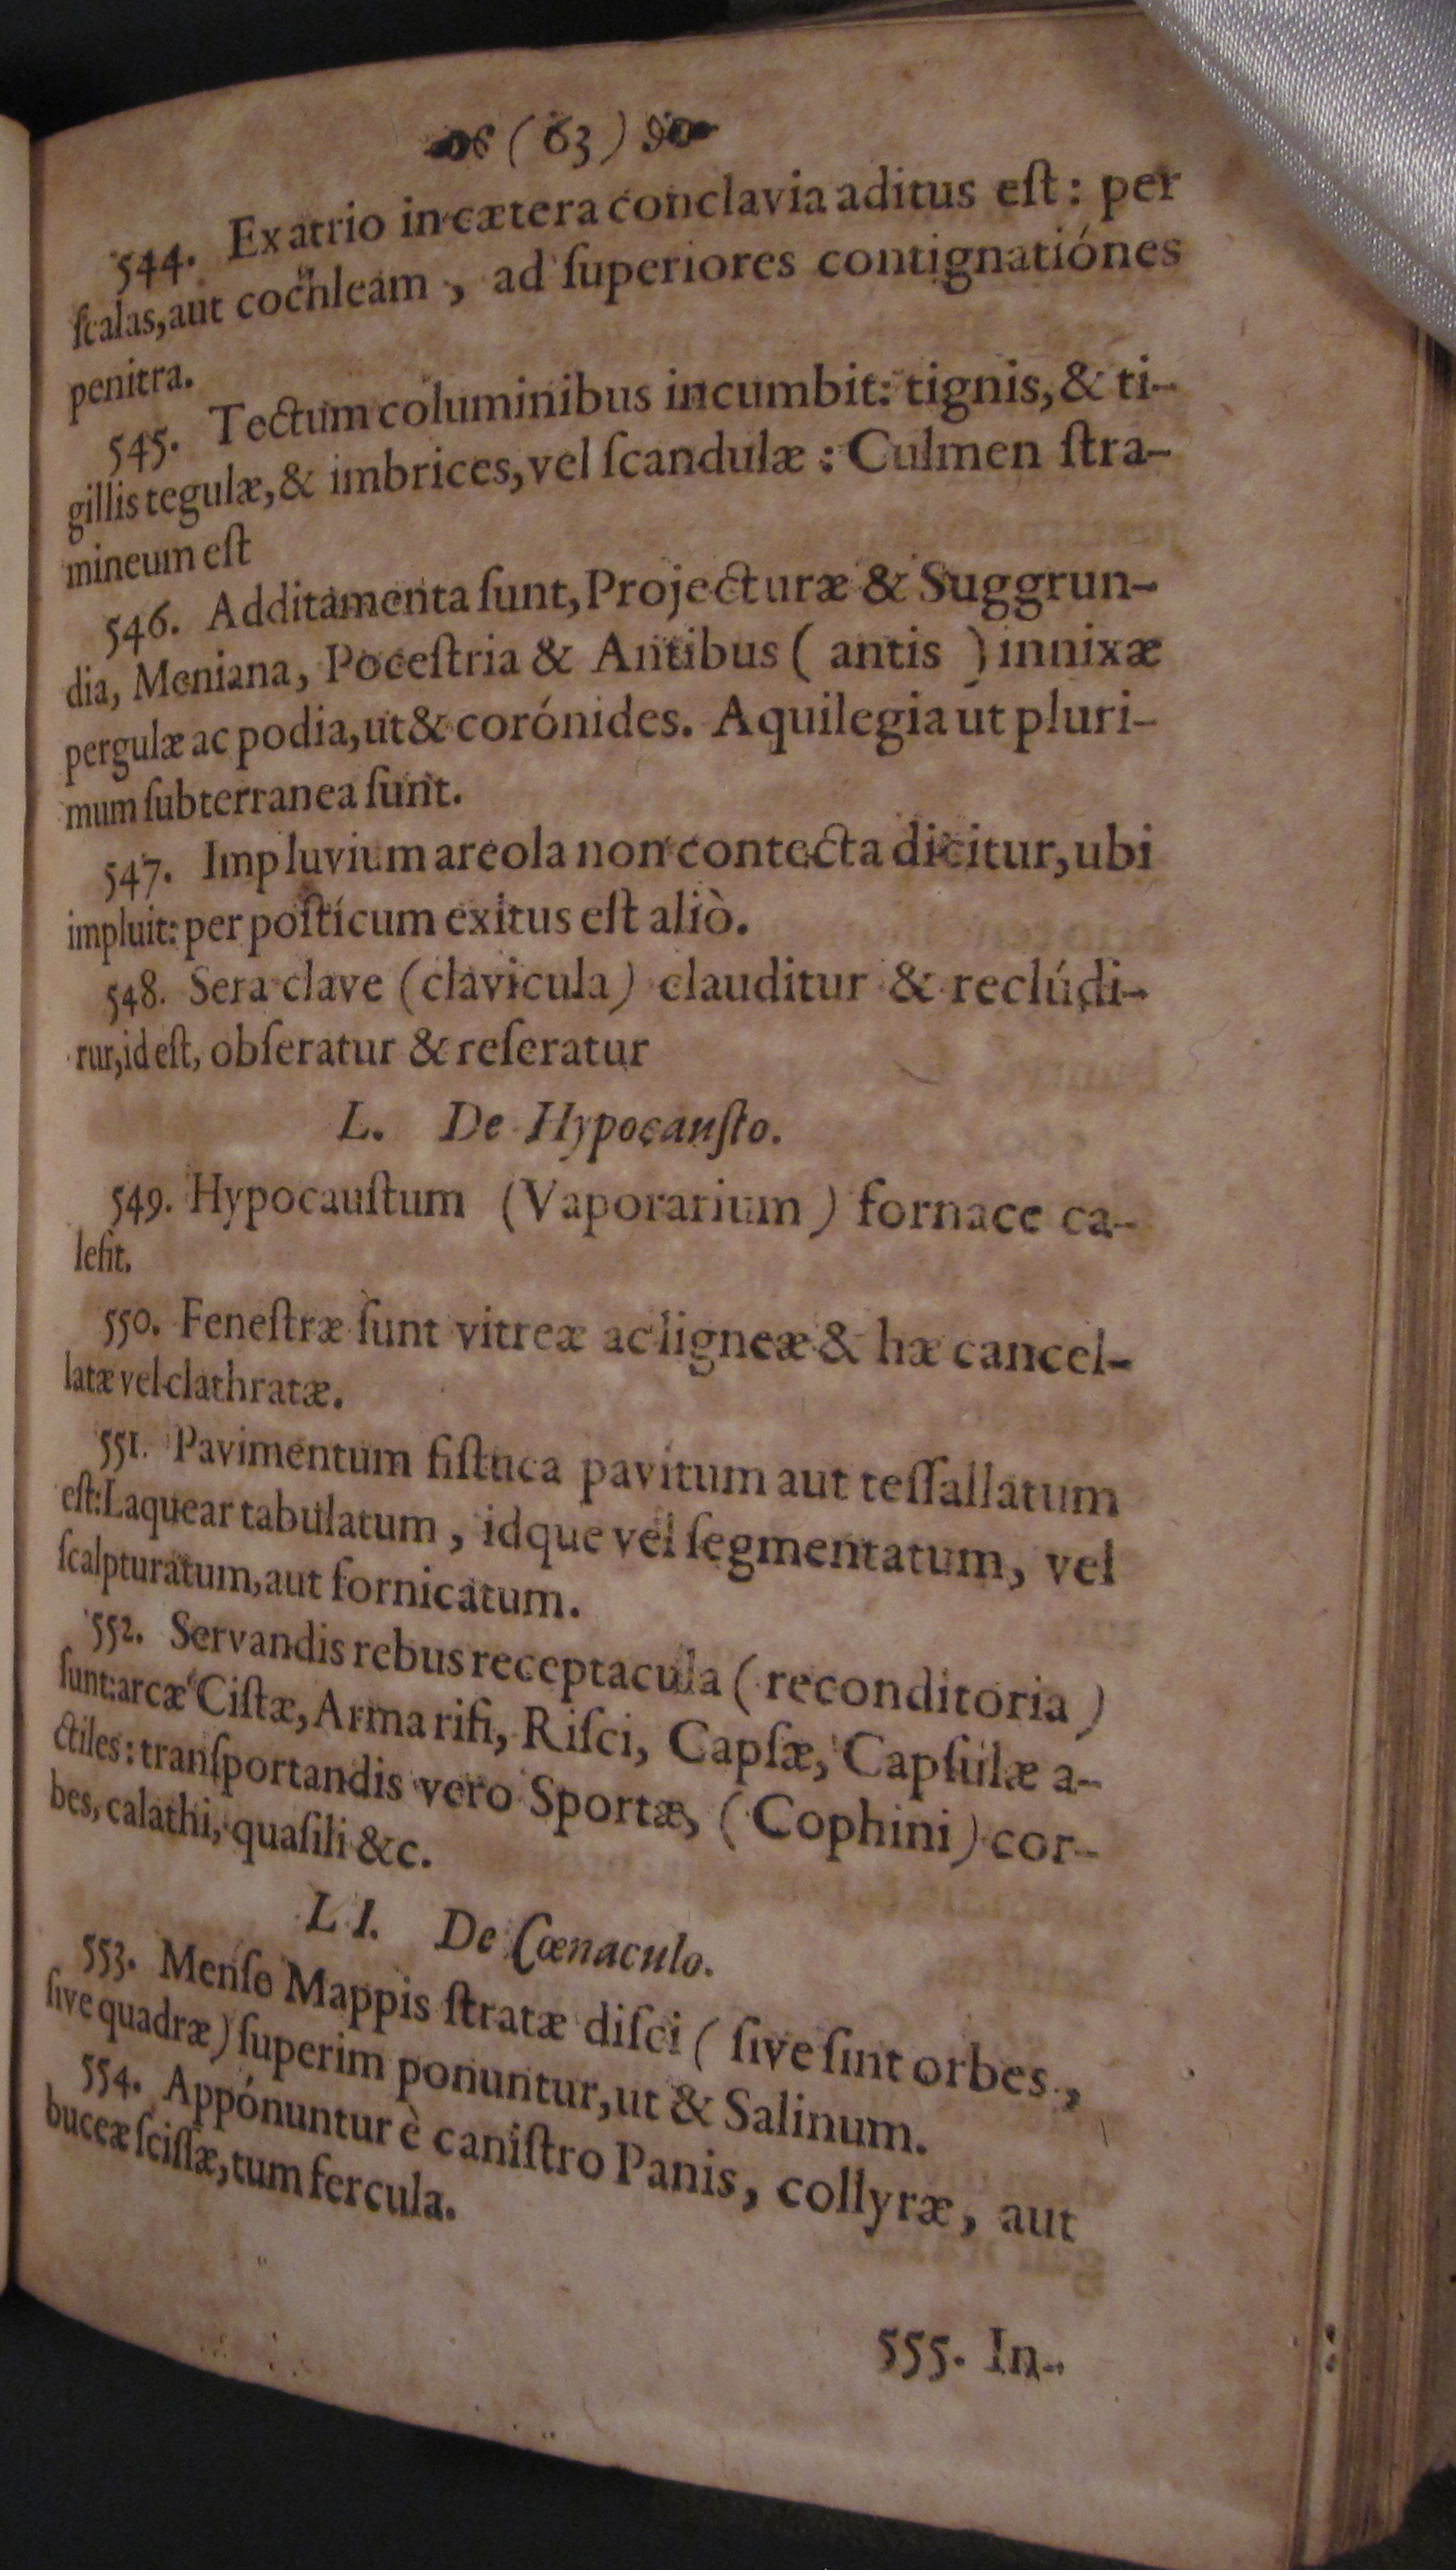 ( 63 )
544. Ex atrio in cætera conclavia aditus eſt: per
ſcalas, aut cochleam, ad ſuperiores contignatiónes
penitra.
545. Tectum columinibus incumbit: tignis, & ti-
gillis tegulæ, & imbrices, vel ſcandulæ: Culmen ſtra-
mineum eſt
546. Additamenta ſunt, Projecturæ & Suggrun-
dia, Meniana, Poceſtria & Antibus ( antis ) innixæ
pergulæ ac podia, ut & corónides. Aquilegia ut pluri-
mum ſubterranea ſunt.
547. Impluvium areola non contecta dicitur, ubi
impluit: per poſtícum exitus eſt aliò.
548. Sera clave (clavicula) clauditur & reclúdi-
rur, id eſt, obſeratur & reſeratur
L. De Hypocauſto.
549. Hypocauſtum (Vaporarium) fornace ca-
leſit.
550. Feneſtræ ſunt vitreæ ac ligneæ & hæ cancel-
latæ vel clathratæ.
551. Pavimentum fiſtuca pavitum aut teſſallatum
eſt: Laquear tabulatum, idque vel ſegmentatum, vel
ſcalpturatum, aut fornicatum.
552. Servandis rebus receptacula ( reconditoria )
ſunt: arcæ Ciſtæ, Armarifi, Riſci, Capſæ, Capſulæ a-
ctiles: tranſportandis vero Sportæ, (Cophini) cor-
bes, calathi, quaſili &c.
LI. De Cœnaculo.
553. Menſo Mappis ſtratæ diſci ( ſive ſint orbes,
ſive quadræ) ſuperim ponuntur, ut & Salinum.
554. Appónuntur è caniſtro Panis, collyræ, aut
buceæ ſciſſæ, tum fercula.
555. In-